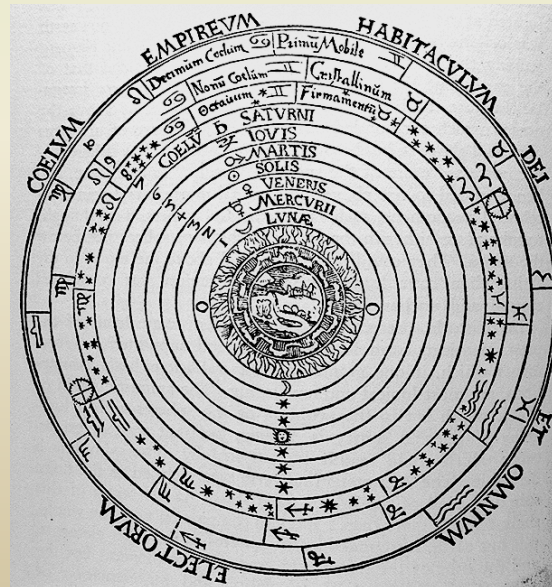 COELUM EMPIREVM HABITACVLVM DEI ET OMNIVM ELECTORVM
Decimum Coelum Primū Mobile
Nonū Coelum Cristallinum
Octauum Firmamentū
COELV SATVRNI
IOVIS
MARTIS
SOLIS
VENERIS
MERCVRII
LVNÆ
10
9
8
7
6
5
4
3
2
1